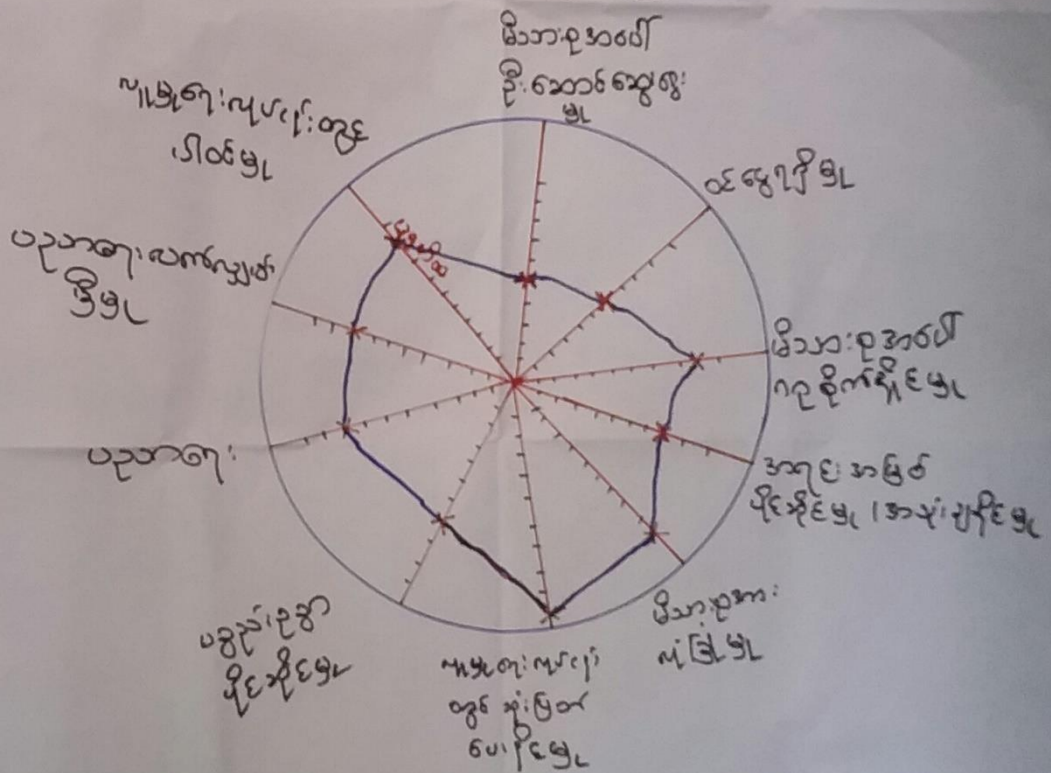 မိသားစုအပေါ်
ဦးဆောင်ဆွေးနွေး
မှု
ဝင်ငွေရရှိမှု
မိသားစုအပေါ်
ဂရုစိုက်နိုင်မှု
အရင်းအမြစ်
ပိုင်ဆိုင်မှု၊အသုံးချနိုင်မှု
မိသားစုအား
လုံခြုံမှု
လူမှုရေးလုပ်ငန်း
တွင် ဆုံးဖြတ်
ပေးနိုင်မှု
ပစ္စည်းဥစ္စာ
ပိုင်ဆိုင်မှု
ပညာရေး
ပညာရေးလက်လှမ်း
မှီမှု
လူမှုရေးလုပ်ငန်းတွင်
ပါဝင်မှု